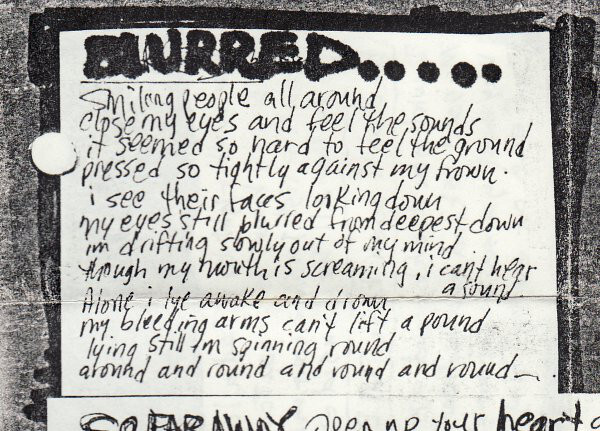 BLURRED.....
Smiling people all around
close my eyes and feel the sounds
it seemed so hard to feel the ground
pressed so tightly against my frown.
i see their faces looking down
my eyes still blurred from deepest down
im drifting slowly out of my mind
though my mouth is screaming, i can't hear
a sound.
Alone i lye awake and drown
my bleeding arms can't lift a pound
lying still I'm spinning round
around and round and round and round_.
SO FAR AWAY open up your heart